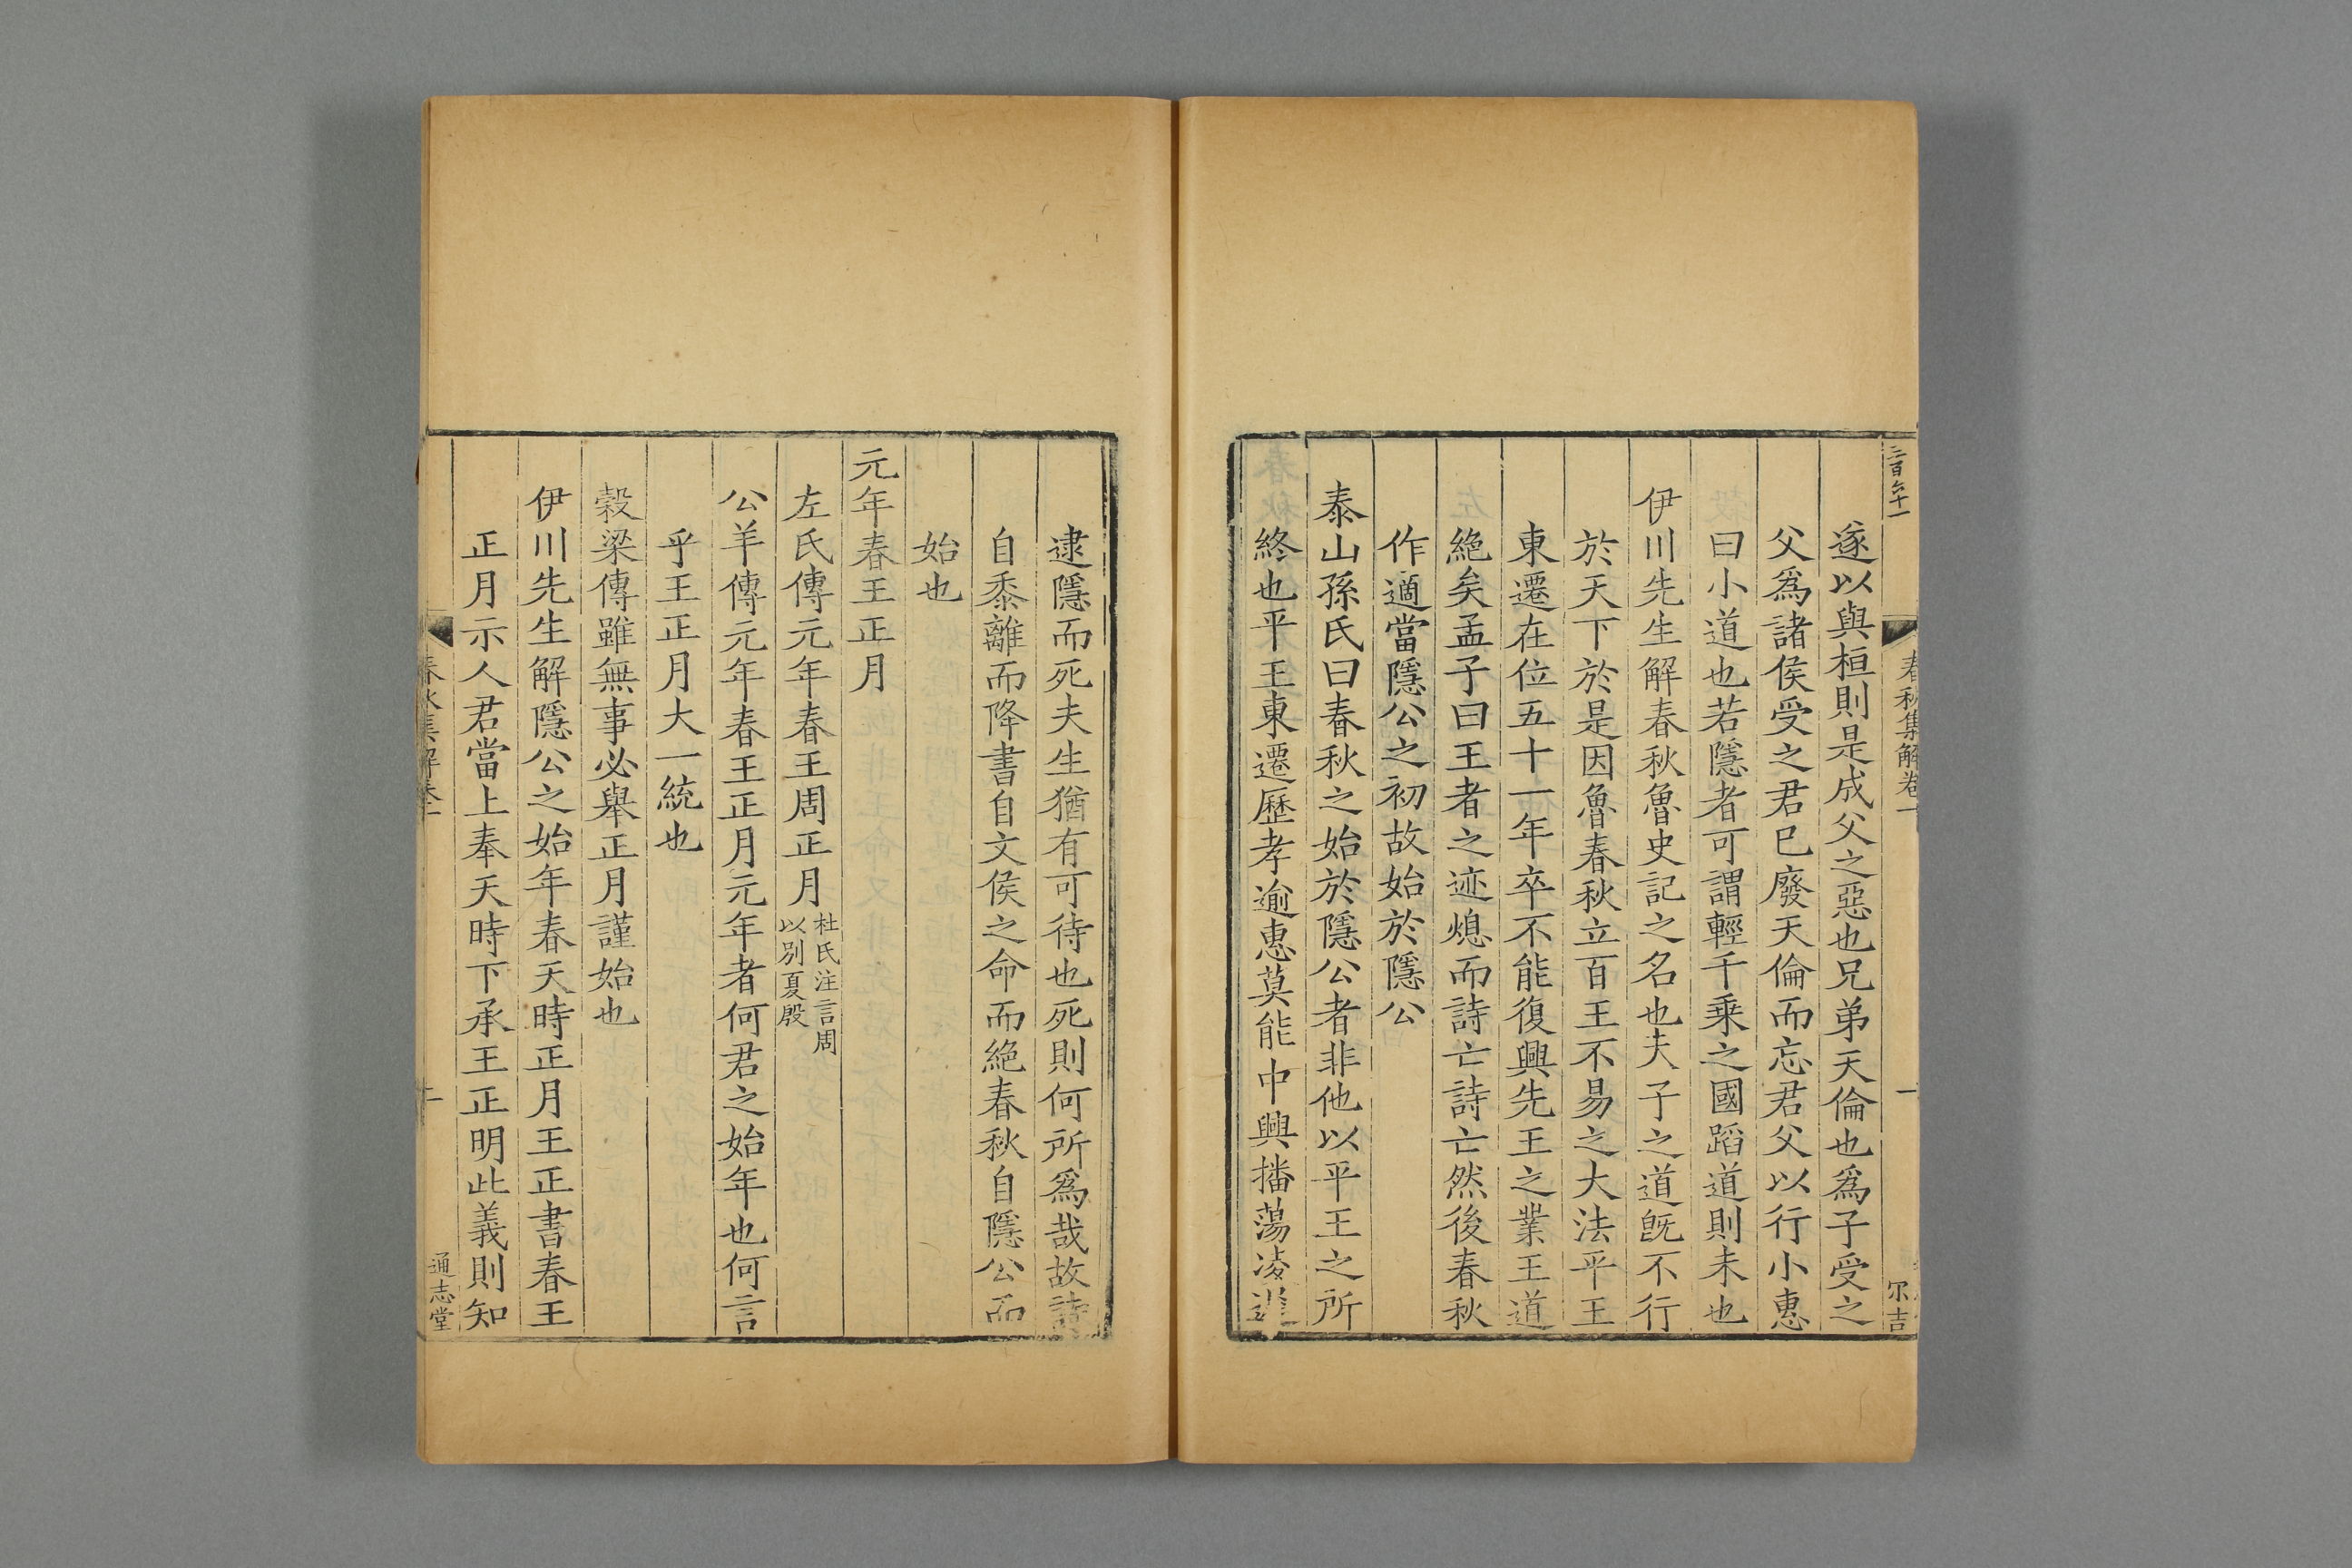 三百六十一
春秋集解卷一
一
尔吉
遂以與桓則是成父之惡也兄弟天倫也爲子受之
父爲諸侯受之君已廢天倫而忘君父以行小惠
曰小道也若隱者可謂輕千乗之國蹈道則未也
伊川先生解春秋魯史記之名也夫子之道旣不行
於天下於是因魯春秋立百王不易之大法平王
東遷在位五十一年卒不能復興先王之業王道
絶矣孟子曰王者之迹熄而詩亡詩亡然後春秋
作適當隱公之初故始於隱公
泰山孫氏曰春秋之始於隱公者非他以平王之所
終也平王東遷歷孝逾惠莫能中興播蕩凌遲
逮隱而死夫生猶有可待也死則何所爲哉故詩
自黍離而降書自文侯之命而絶春秋自隱公而
始也
元年春王正月
左氏傳元年春王周正月
杜氏注言周
以別夏殷
公羊傳元年春王正月元年者何君之始年也何言
乎王正月大一統也
榖梁傳雖無事必舉正月謹始也
伊川先生解隱公之始年春天時正月王正書春王
正月示人君當上奉天時下承王正明此義則知
春秋集解卷一
通志堂